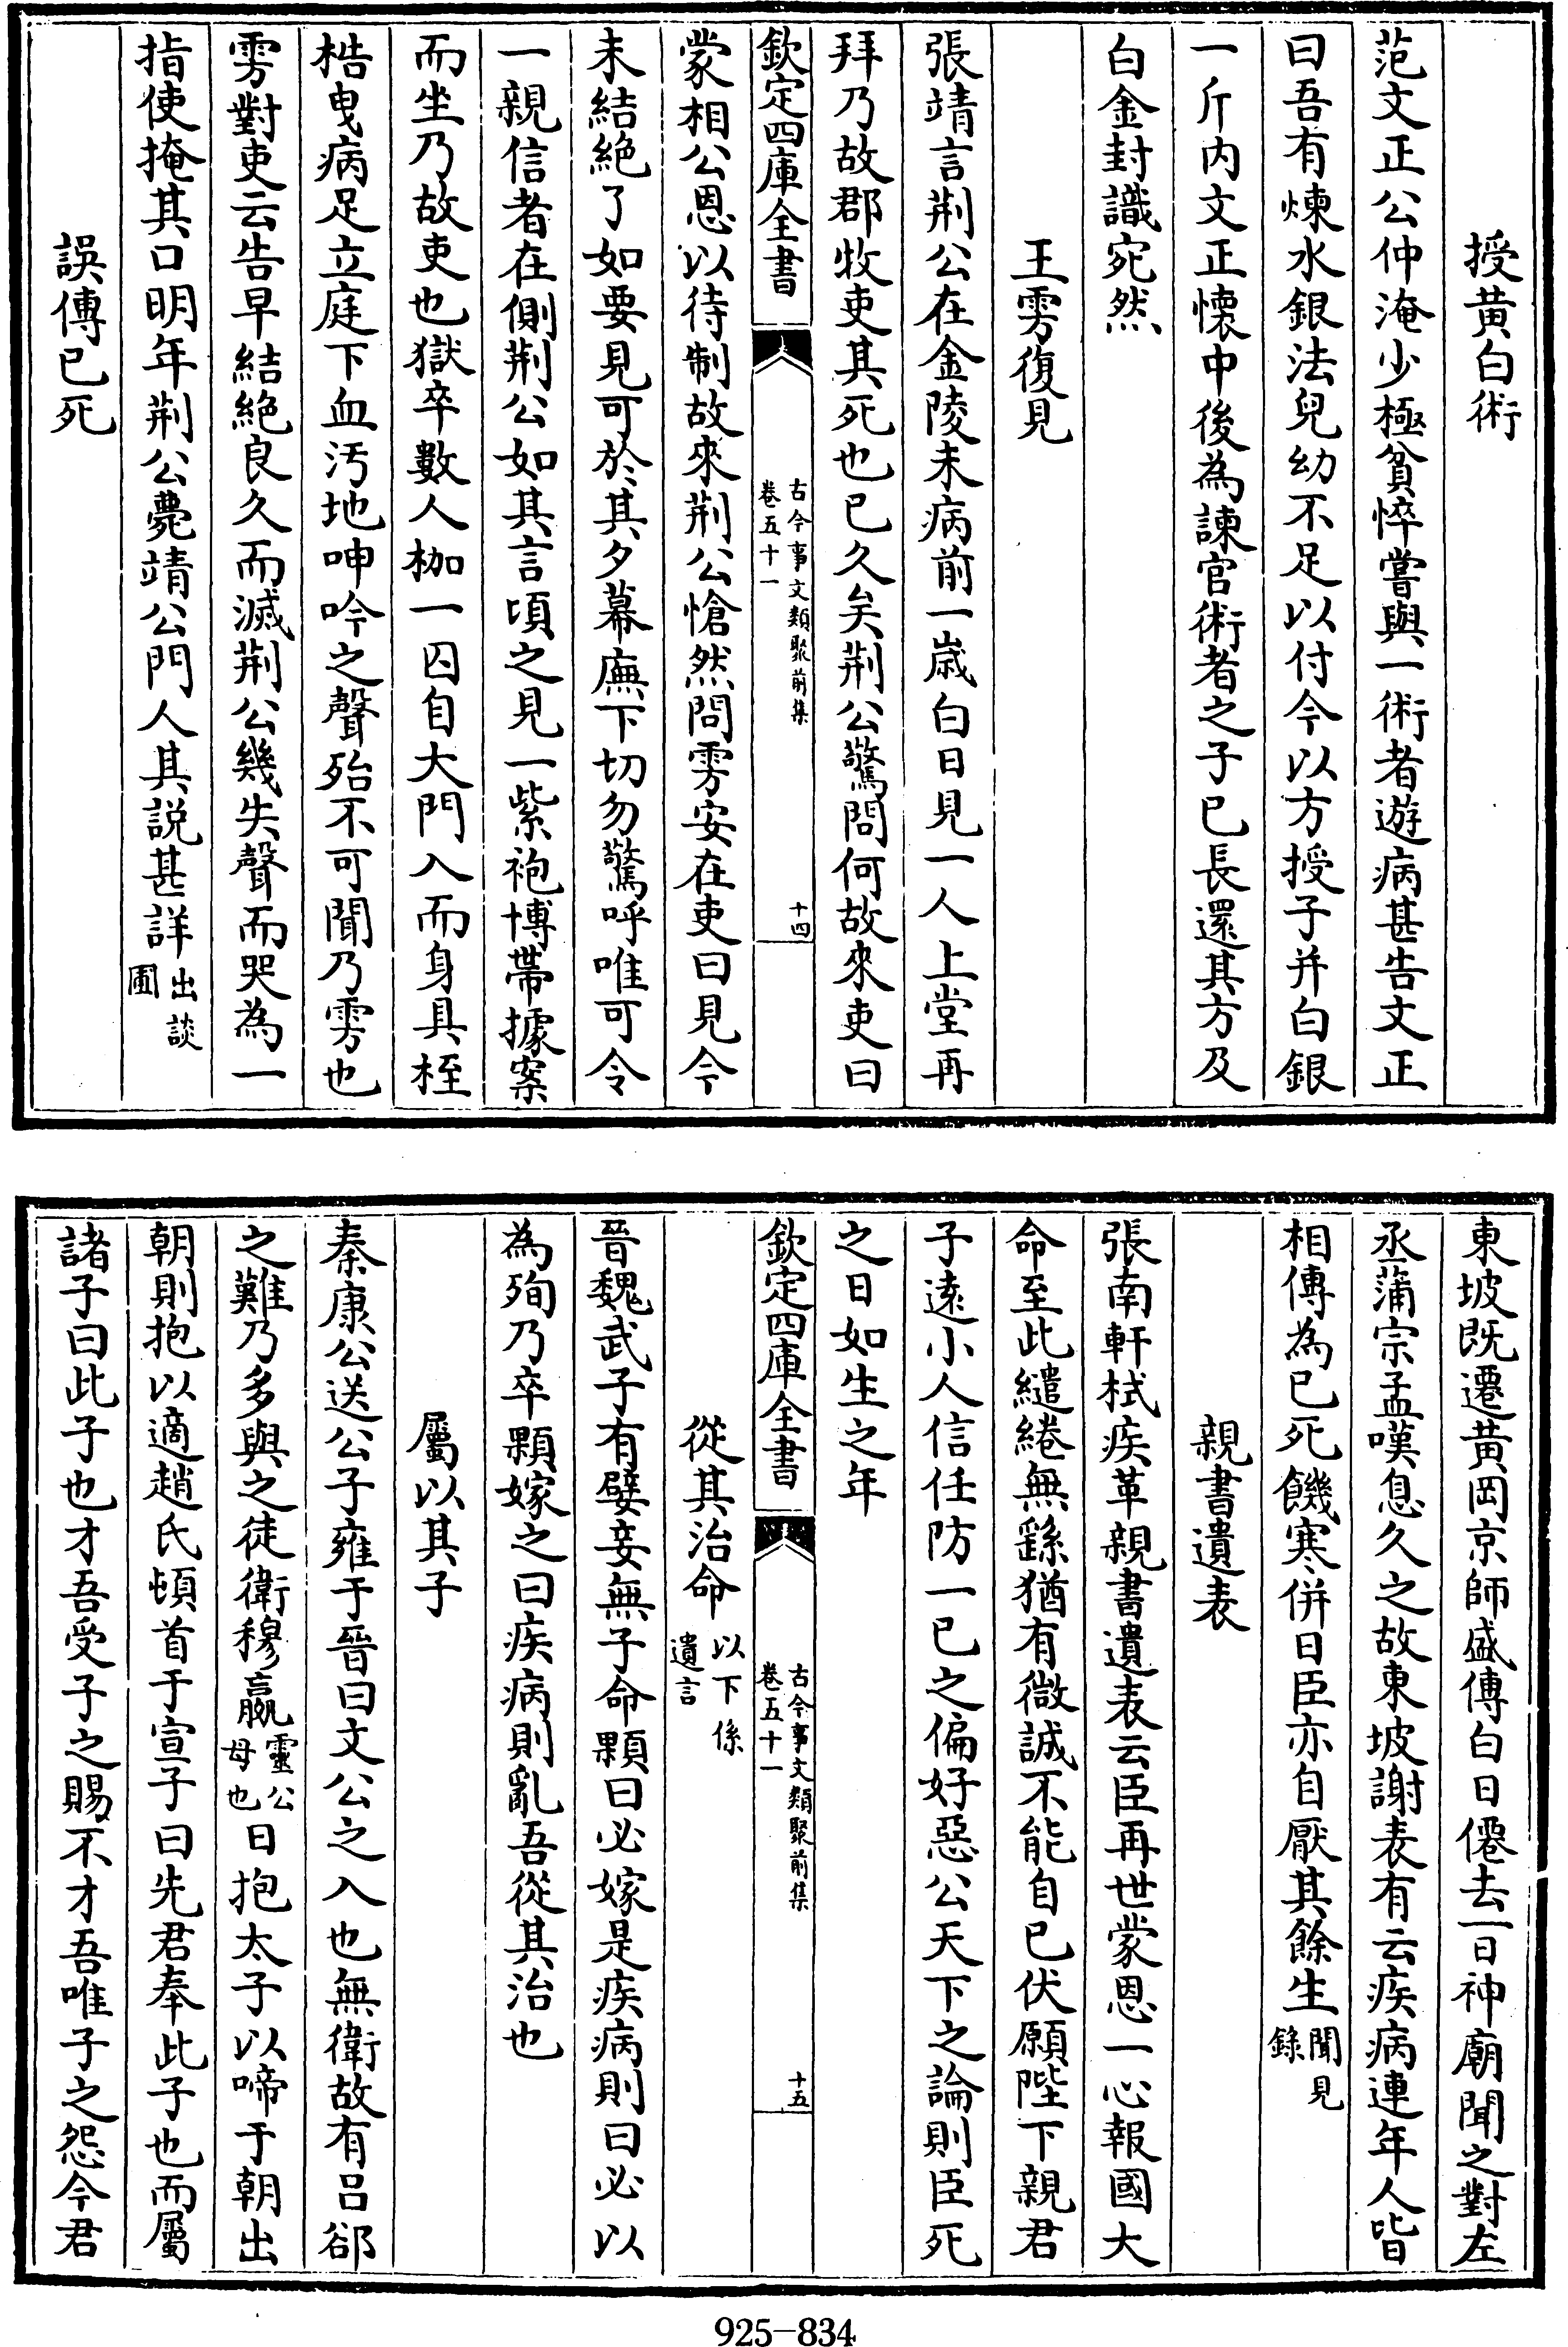 授黄白術
范文正公仲淹少極貧悴嘗與一術者遊病甚告文正
曰吾有煉水銀法兒幼不足以付今以方授子并白銀
一斤内文正懐中後為諫官術者之子已長還其方及
白金封識宛然
王雱復見
張靖言荆公在金陵未病前一歲白日見一人上堂再
拜乃故郡牧吏其死也已久矣荆公驚問何故來吏曰
欽定四庫全書
古今事文類聚前集
卷五十一
十四
蒙相公恩以待制故來荆公愴然問雱安在吏曰見今
未結絶了如要見可於其夕幕廡下切勿驚呼唯可令
一親信者在側荆公如其言頃之見一紫袍博帶據案
而坐乃故吏也獄卒數人枷一囚自大門入而身具桎
梏曳病足立庭下血汚地呻吟之聲殆不可聞乃雱也
雱對吏云告早結絶良久而滅荆公幾失聲而哭為一
指使掩其口明年荆公薨靖公門人其説甚詳出談
圃
誤傳已死
東坡既遷黄岡京師盛傳白日僊去一日神廟聞之對左
丞蒲宗孟嘆息久之故東坡謝表有云疾病連年人皆
相傳為已死饑寒併日臣亦自厭其餘生聞見
錄
親書遺表
張南軒栻疾革親書遺表云臣再世蒙恩一心報國大
命至此繾綣無繇猶有微誠不能自已伏願陛下親君
子遠小人信任防一已之偏好惡公天下之論則臣死
之日如生之年
欽定四庫全書
古今事文類聚前集
卷五十一
十五
從其治命以下係
遺言
晉魏武子有嬖妾無子命顆曰必嫁是疾病則曰必以
為殉乃卒顆嫁之曰疾病則亂吾從其治也
屬以其子
秦康公送公子雍于晉曰文公之入也無衛故有吕郤
之難乃多與之徒衛穆嬴靈公
母也日抱太子以啼于朝出
朝則抱以適趙氏頓首于宣子曰先君奉此子也而屬
諸子曰此子也才吾受子之賜不才吾唯子之怨今君
925-834